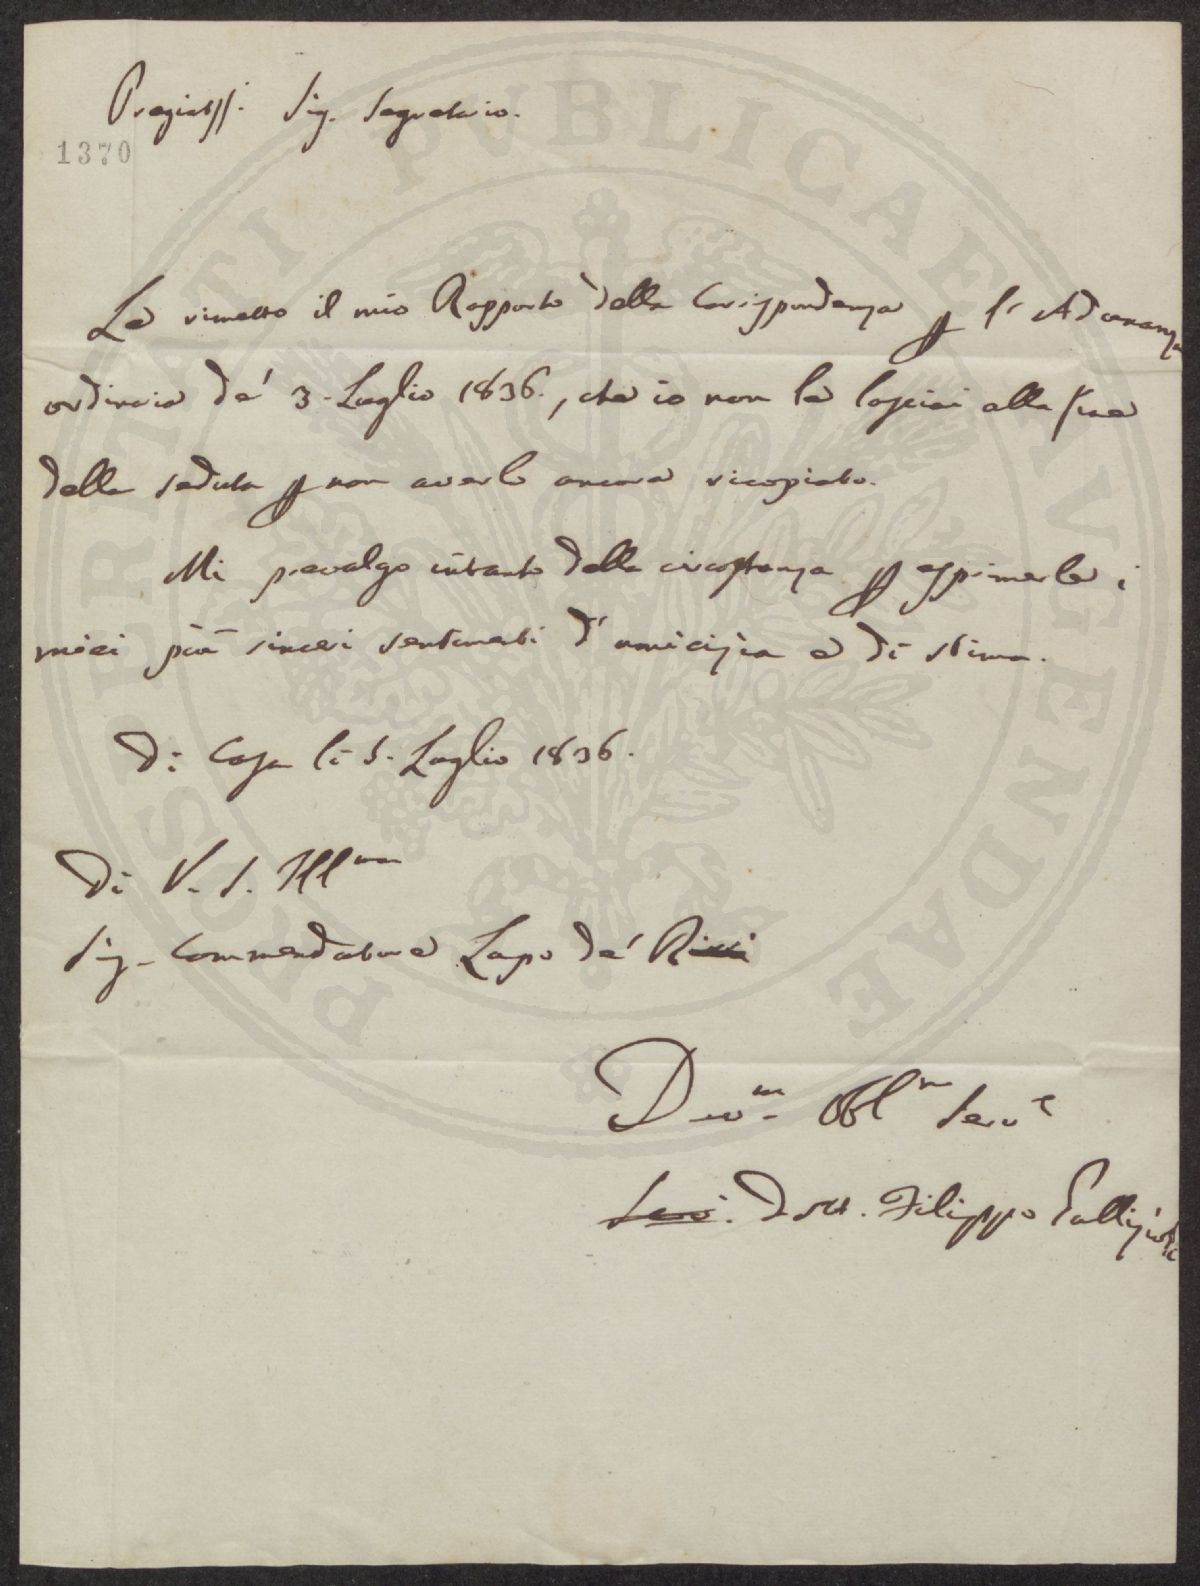 Pregiatss. Sig. Segretario.
1370
Le rimetto il mio Rapporto della Corrispondenza p l' Adunanza
ordinaria de' 3. Luglio 1836., che io non le lasciai alla fine
della seduta p non averlo ancora ricopiato.
Mi prevalgo intanto della circostanza p esprimerle i
miei più sinceri sentimenti d' amicizia e di stima.
Di Casa li 5. Luglio 1836.
Di V. S. Illma
Sig. Commendatore Lapo de' Ricci
Devm. Obblm Serve
Dott. Filippo Gallizioli
PROSPERITATI PUBLICAE AUGENDAE